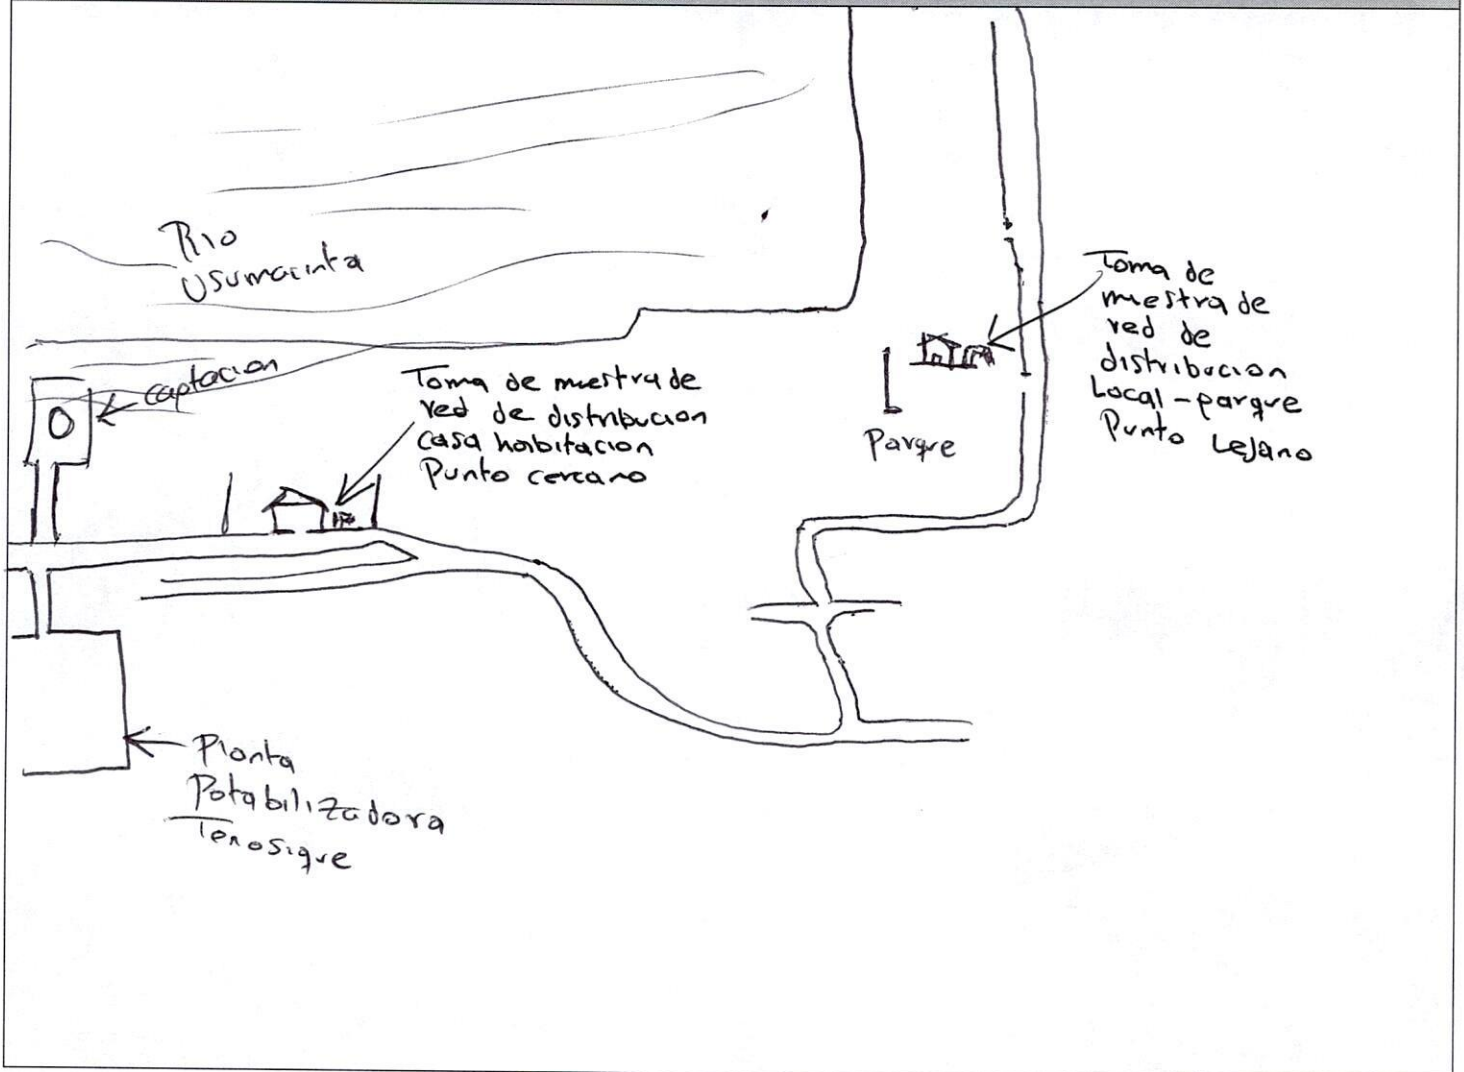 Rio
Usumacinta
captacion
Toma de muestra de
red de distribucion
casa habitacion
Punto cercano
Toma de
muestra de
red de
distribucion
Local - parque
Punto Lejano
Parque
Planta
Potabilizadora
Tenosique